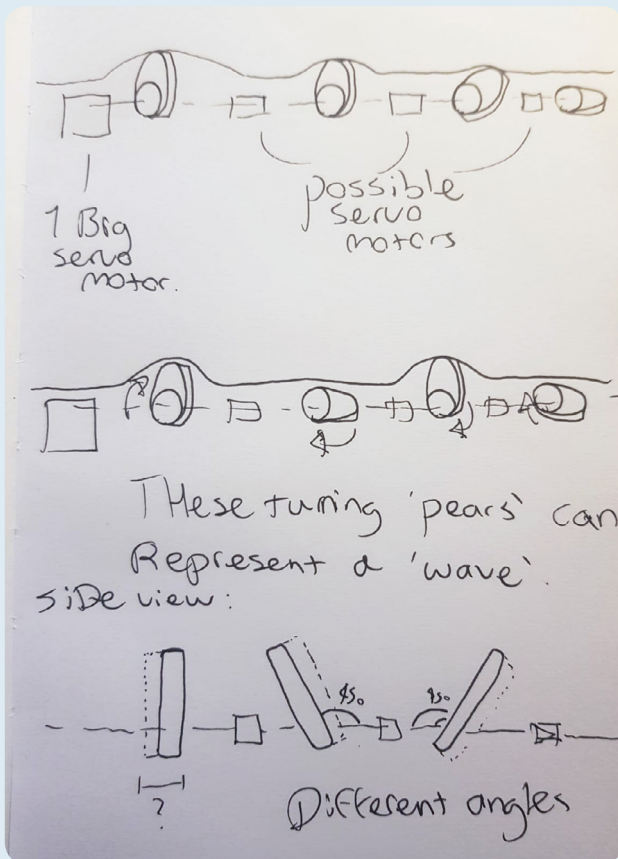 1 Big
servo
motor.
possible
servo
motors
THese turning 'pears' can
Represent a 'wave'.
siDe view:
45°
45°
?
Different angles